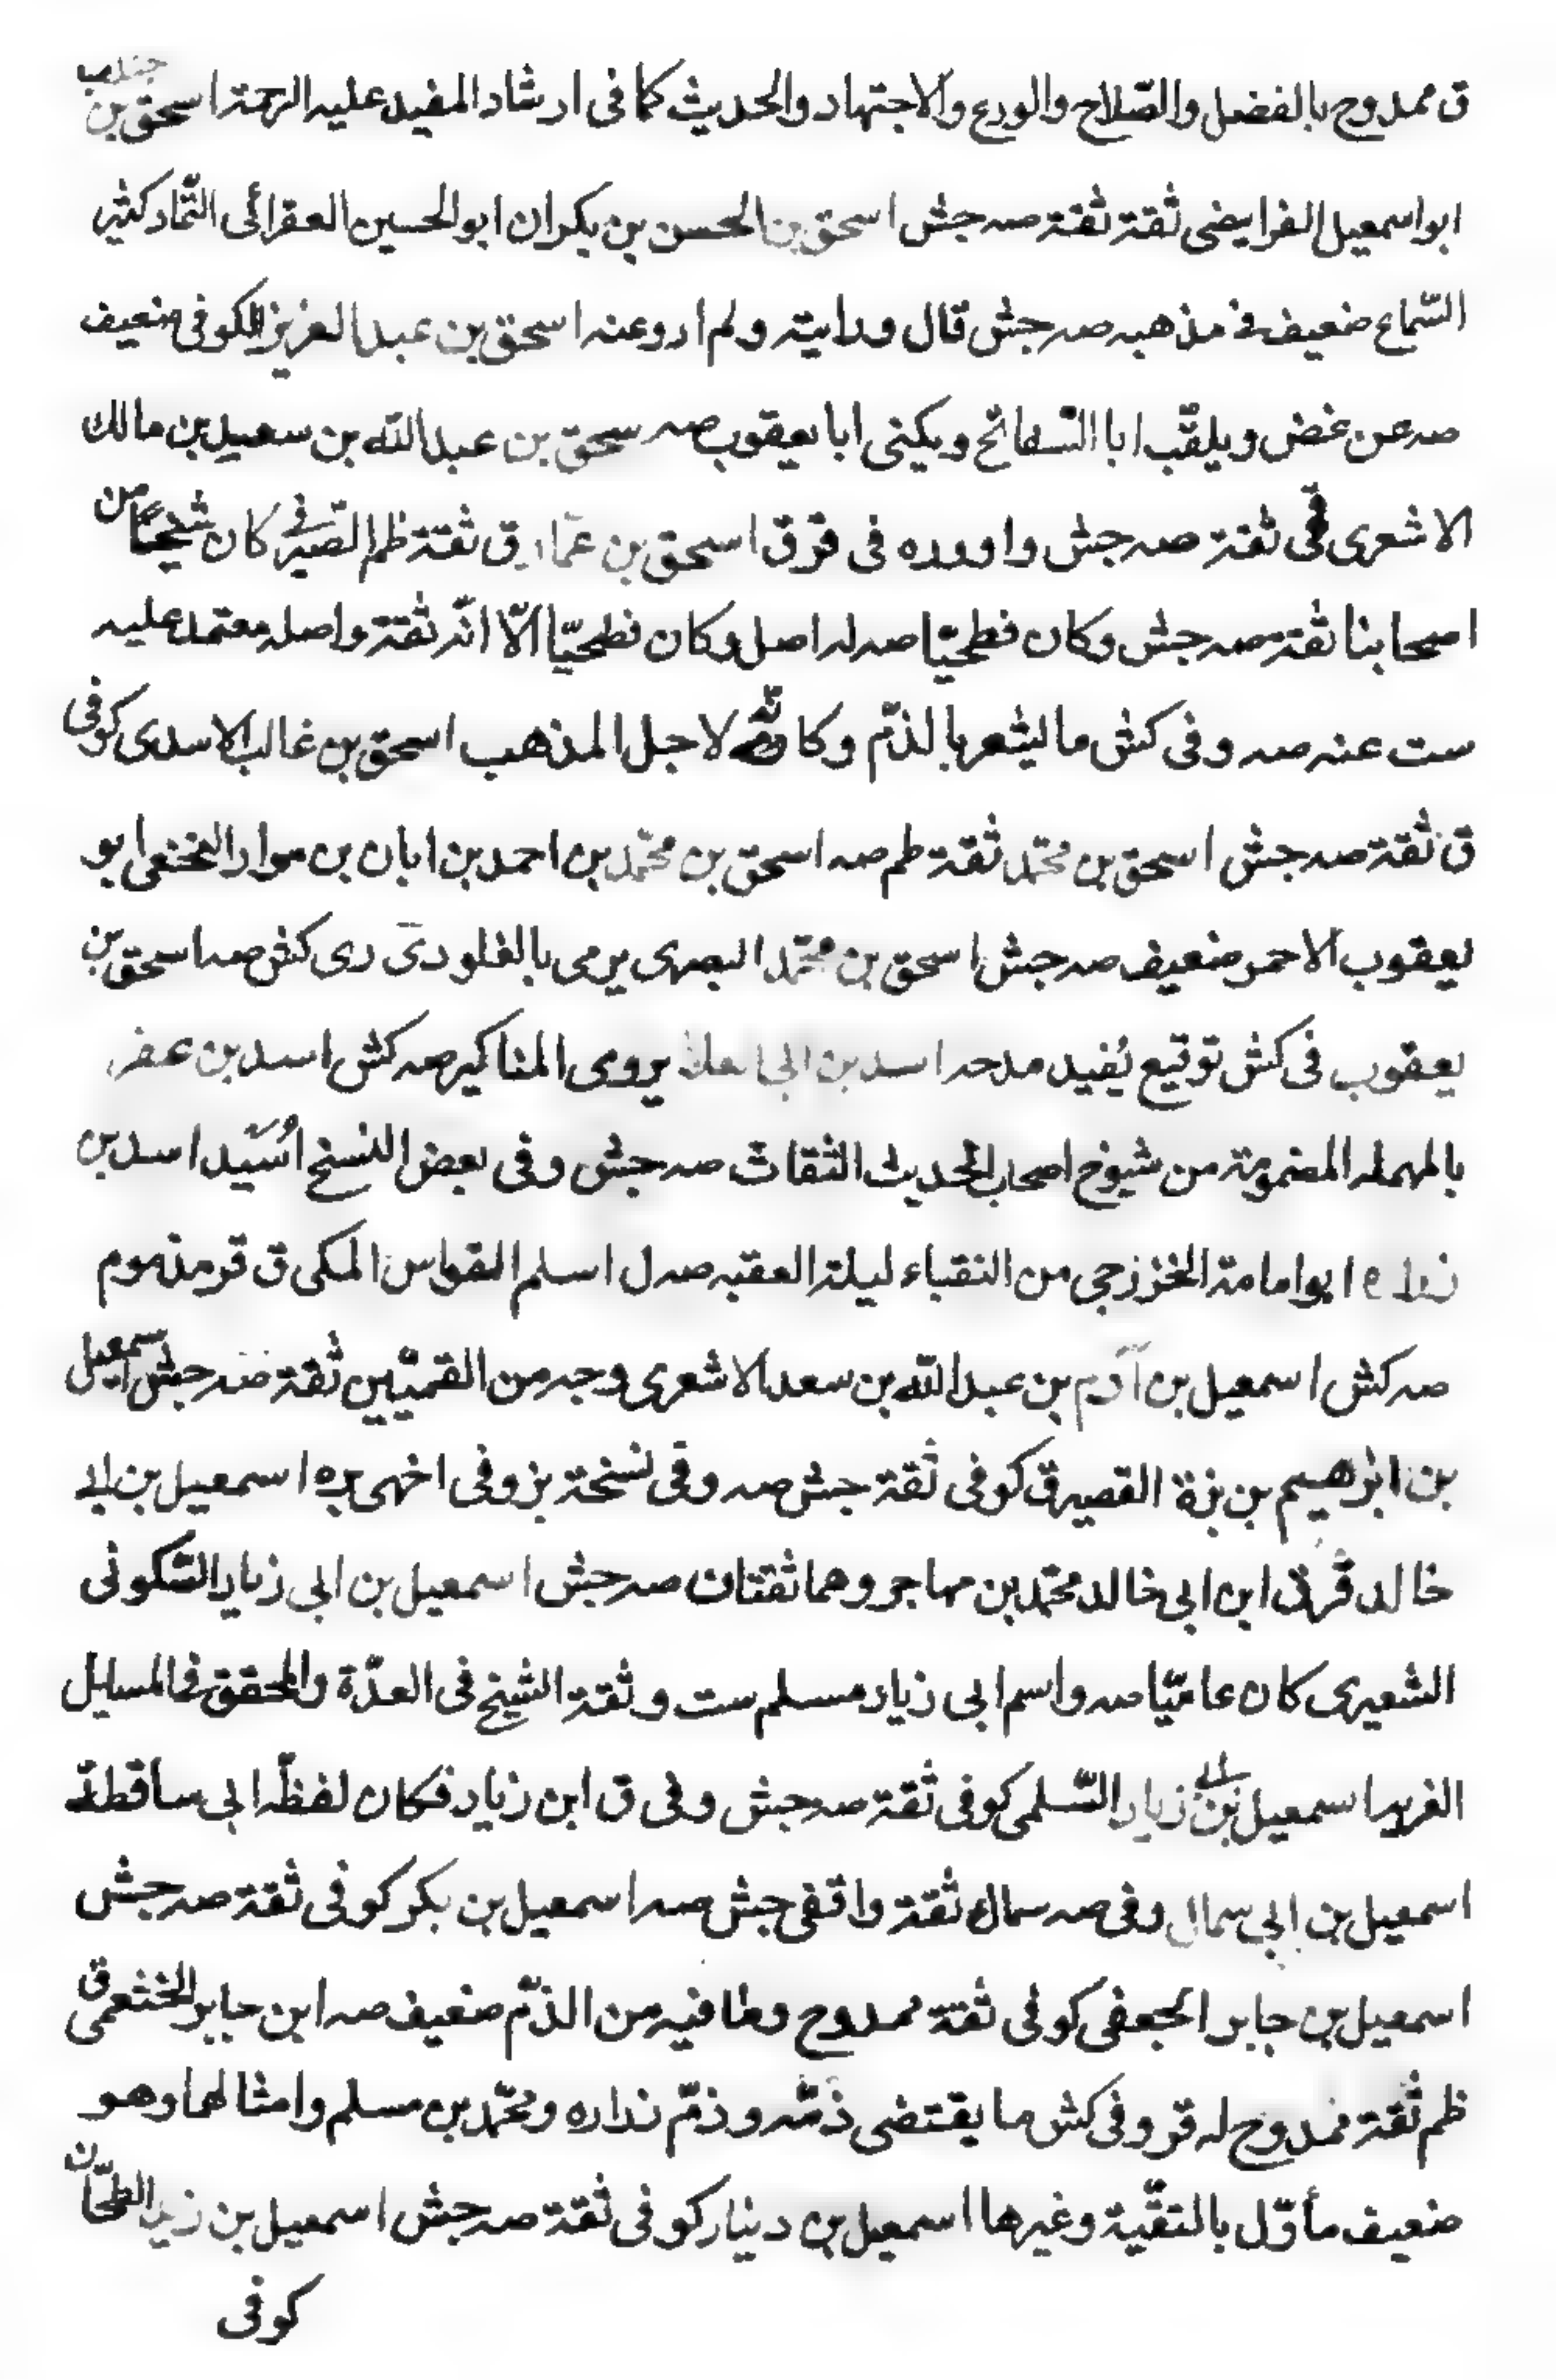 ق ممدوح بالفضل والصّلاح والورع والاجتهاد والحديث كما فى ارشاد المفيد عليه الرحمة اسحق بن جندب
ابو اسمعيل الفرايضى ثقة ثقة صه جش اسحق بن الحسن بن بكران ابو الحسين العقرائى التّمار كثير
السّماع ضعيف فى مذهبه صه جش قال ورايته ولم اروعنه اسحق بن عبد العزيز الكوفى ضعيف
صه عن غض ويلقّب ابا السّفاتج ويكنى ابا يعقوب صه سحق بن عبد الله بن سعيد بن مالك
الاشعرى قمّى ثقة صه جش واورده فى قر ق اسحق بن عمّار ق ثقة ظم الصّيرفى كان شيخًا من
اصحابنا ثقة صه جش وكان فطحيّا صه له اصل وكان فطحيّا الّا انّه ثقة واصله معتمد عليه
ست عنه صه وفى كش ما يشعر بالذمّ وكانّه لاجل المذهب اسحق بن غالب الاسدى كوفى
ق ثقة صه جش اسحق بن محمّد ثقة ظم صه اسحق بن محمّد بن احمد بن ابان بن موار النخعى ابو
يعقوب الاحمر ضعيف صه جش اسحق بن محمّد البصرى يرمى بالغلو دى رى كش صه اسحق بن
يعقوب فى كش توقيع يُفيد مدحه اسد بن ابى العلا يروى المناكير صه كش اسد بن عفر
بالمهمله المضمومة من شيوخ اصحاب الحديث الثقات صه جش وفى بعض النسخ اُسَيد اسد بن
زراره ابو امامة الخزرجى من النقباء ليلة العقبه صه ل اسلم القواس المكى ق قر مذموم
صه كش اسمعيل بن آدم بن عبد الله بن سعد الاشعرى وجه من القميّين ثقة صه جش اسمعيل
بن ابرهيم بن بزة القصير ق كوفى ثقة جش صه وفى نسخة بز وفى اخرى بره اسمعيل بن ابى
خالد قر ق ابن ابى خالد محمّد بن مهاجر وهما ثقتان صه جش اسمعيل بن ابى زياد السّكونى
الشعيرى كان عاميّا صه واسم ابى زياد مسلم ست وثقة الشيخ فى العدّة والمحقق فى المسايل
الغريه اسمعيل بن ابى زياد السّلمى كوفى ثقة صه جش وفى ق ابن زياد فكان لفظة ابى ساقطة
اسمعيل بن ابى سمال وفى صه سماك ثقة واقفى جش صه اسمعيل بن بكر كوفى ثقة صه جش
اسمعيل بن جابر الجعفى كوفى ثقة ممدوح وما فيه من الذمّ ضعيف صه ابن جابر الخثعمى ق
ظم ثقة ممدوح له قر وفى كش ما يقتضى ذمّه وذمّ زراره ومحمّد بن مسلم وامثالهما وهو
ضعيف مأوّل بالتقيّة وغيرها اسمعيل بن دينار كوفى ثقة صه جش اسمعيل بن زيد الطحّان
كوفى